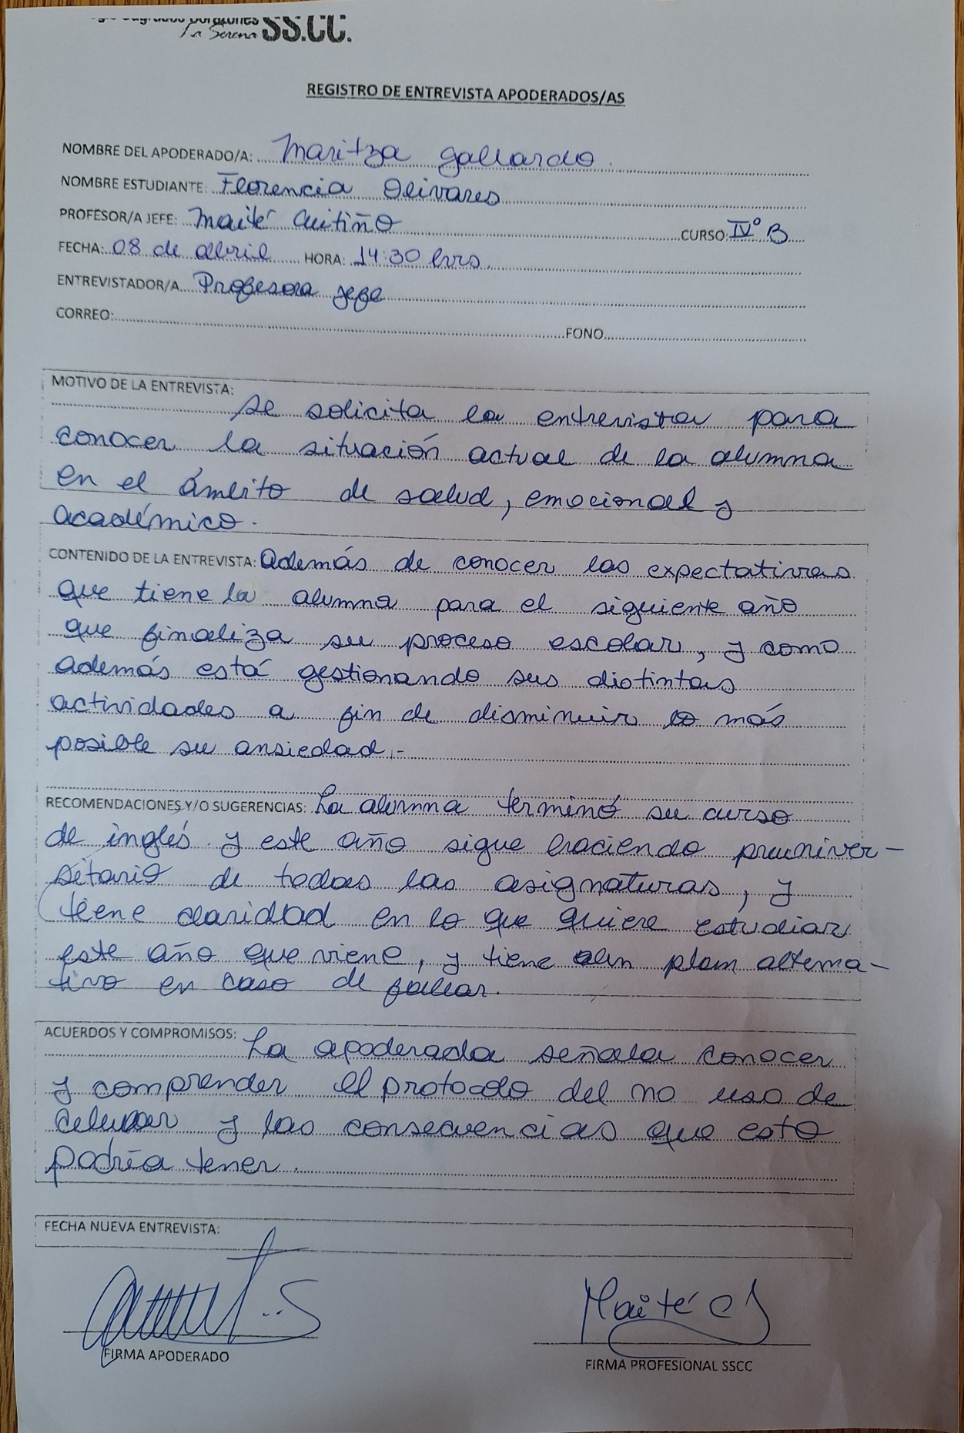 Sagrados Corazones
La Serena SS.CC.
REGISTRO DE ENTREVISTA APODERADOS/AS
NOMBRE DEL APODERADO/A: Maritza Gallardo.
NOMBRE ESTUDIANTE: Florencia Olivares
PROFESOR/A JEFE: Maité Cuitiño CURSO: IV° B
FECHA: 08 de abril HORA: 14:30 hrs.
ENTREVISTADOR/A. Profesora jefe
CORREO: FONO
MOTIVO DE LA ENTREVISTA:
Se solicita la entrevista para
conocer la situación actual de la alumna
en el ámbito de salud, emocional y
académico.
CONTENIDO DE LA ENTREVISTA: Además de conocer las expectativas
que tiene la alumna para el siguiente año
que finaliza su proceso escolar, y como
además está gestionando sus distintas
actividades a fin de disminuir lo más
posible su ansiedad.-
RECOMENDACIONES Y/O SUGERENCIAS: La alumna terminó su curso
de inglés y este año sigue haciendo preuniver-
sitario de todas las asignaturas, y
tiene claridad en lo que quiere estudiar
este año que viene, y tiene un plan alterna-
tivo en caso de fallar.
ACUERDOS Y COMPROMISOS: La apoderada señala conocer
y comprender el protocolo del no uso de
celular y las consecuencias que esto
podría tener.
FECHA NUEVA ENTREVISTA:
Maité C
FIRMA APODERADO
FIRMA PROFESIONAL SSCC